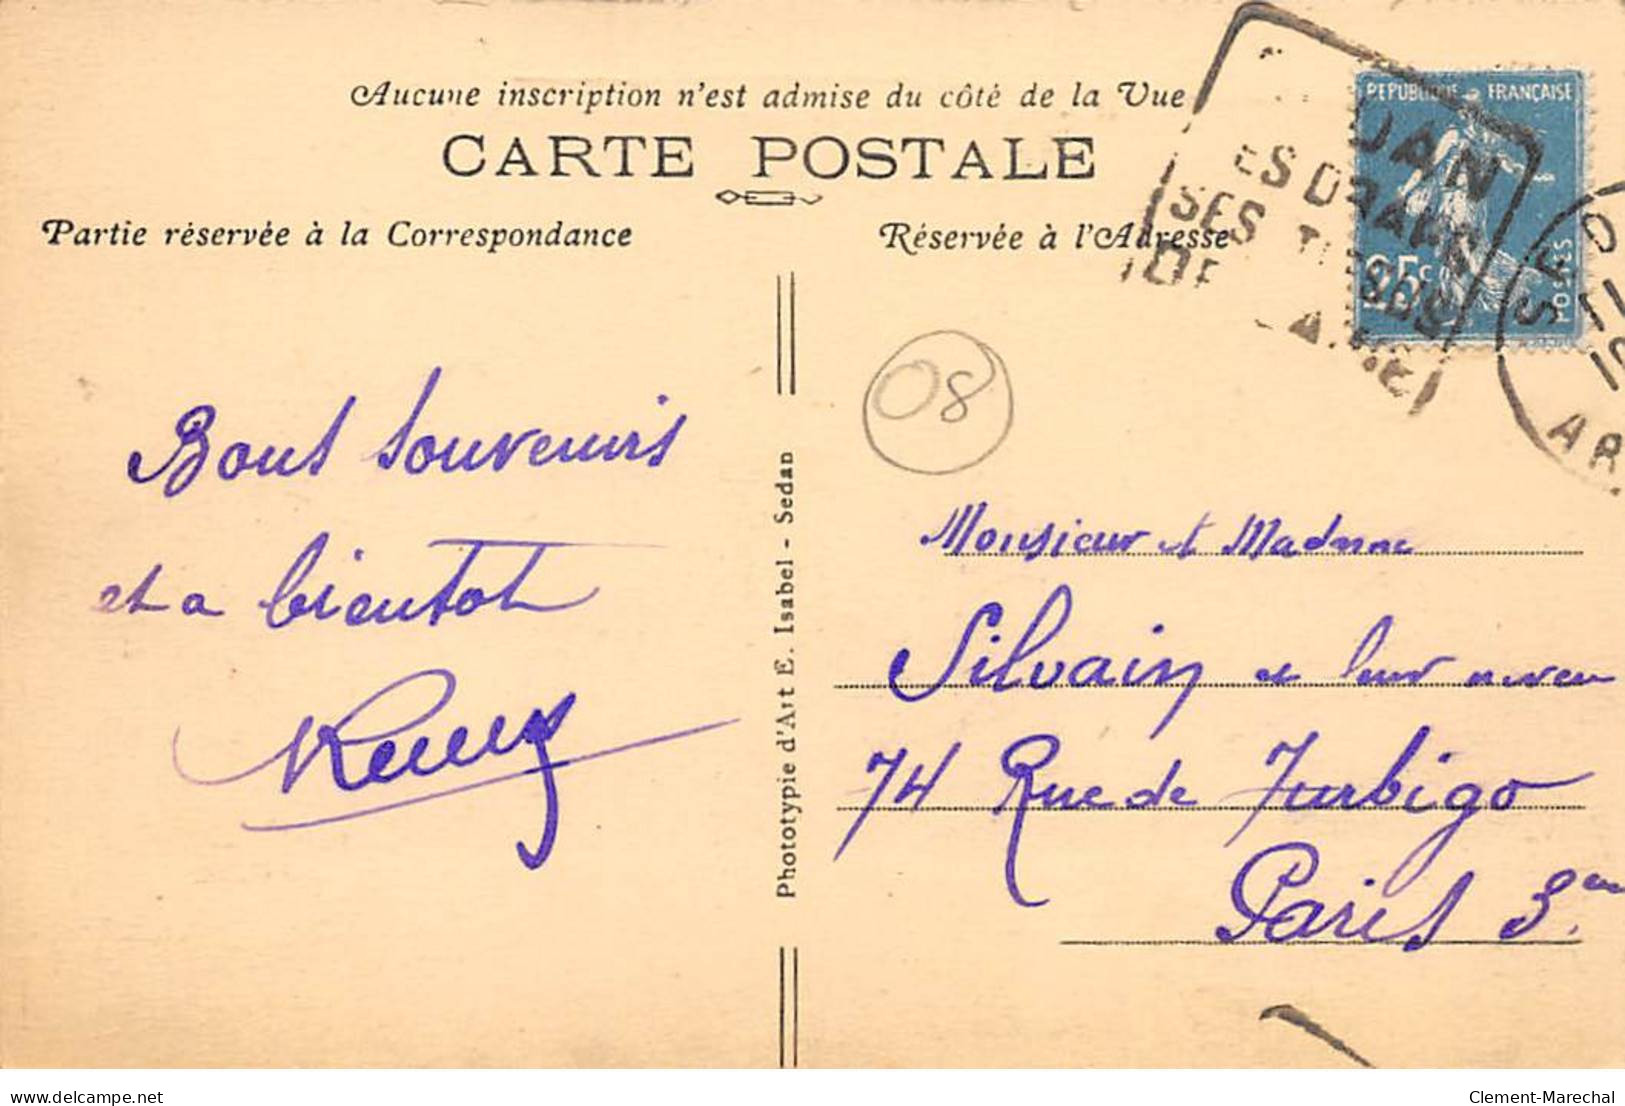 Aucune inscription n'est admise du côté de la Vue
CARTE POSTALE
Partie réservée à la Correspondance
Réservée à l'Adresse
REPUBLIQUE FRANÇAISE
25c
POSTES
DAN
ES DRAPS
SES TISSUS
08
Bons souvenirs
et a bientot
Phototypie d'Art E. Isabel - Sedan
Monsieur et Madame
Silvain et leur neveu
74 Rue de Turbigo
Paris 3.em
delcampe.net
Clement-Marechal